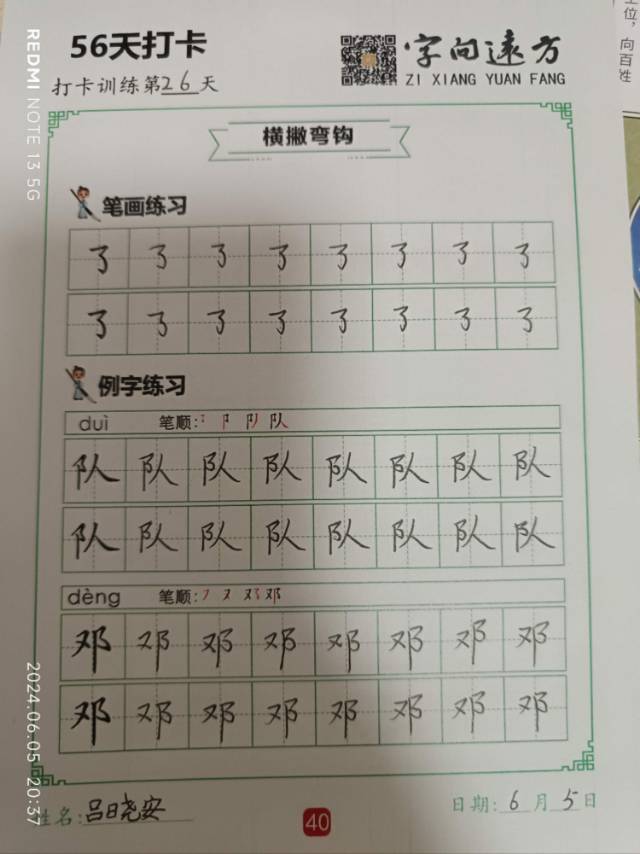 56天打卡
字向远方
打卡训练第26天
ZI XIANG YUAN FANG
横撇弯钩
笔画练习
了 了 了 了 了 了 了 了
了 了 了 了 了 了 了 了
例字练习
duì 笔顺: ㇇ 阝 队 队
队 队 队 队 队 队 队 队
队 队 队 队 队 队 队 队
dèng 笔顺: フ 又 邓 邓
邓 邓 邓 邓 邓 邓 邓 邓
邓 邓 邓 邓 邓 邓 邓 邓
姓名: 吕日晓安
40
日期: 6月5日
REDMI NOTE 13 5G
2024.06.05 20:37
位，向百姓